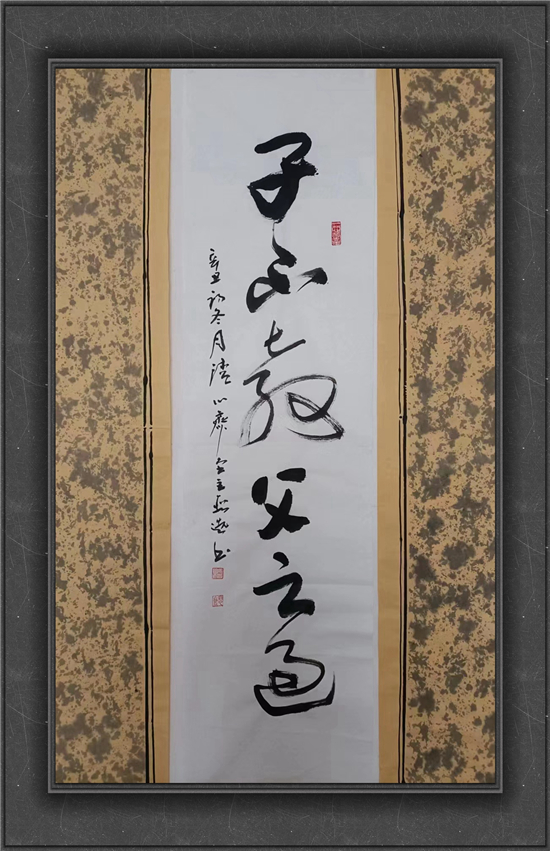 子不教父之過
辛丑初冬月清心齋